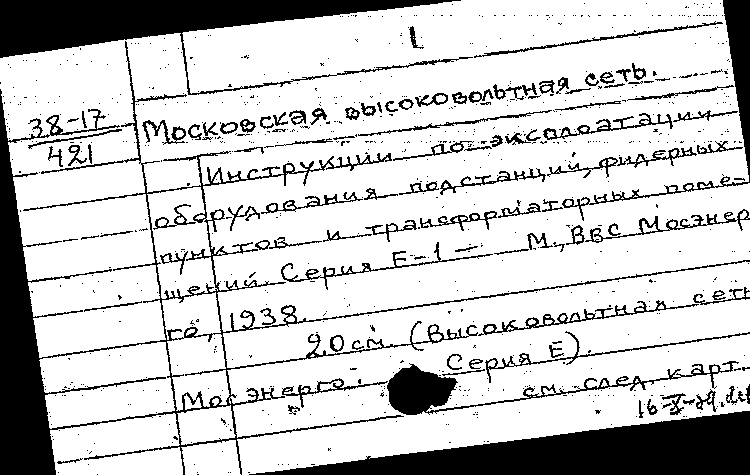 1
38-17
421
Московская высоковольтная сеть.
Инструкции по эксплоатации
оборудования подстанций, фидерных
пунктов и трансформаторных поме-
щений. Серия Е-1 — М., ВВС Мосэнер
го, 1938.
20 см. (Высоковольтная сеть
Мосэнерго. Серия Е).
см. след. карт.
16-X-79.